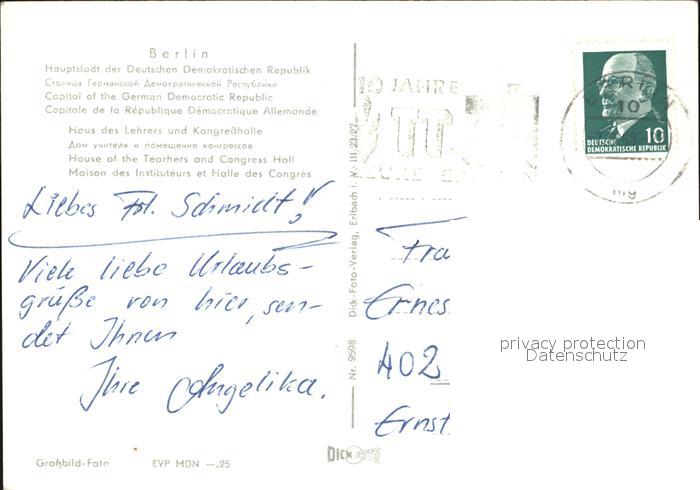 Berlin
Hauptstadt der Deutschen Demokratischen Republik
Столица Германской Демократической Республики
Capital of the German Democratic Republic
Capitale de la République Démocratique Allemande
Haus des Lehrers und Kongreßhalle
Дом учителя и помещение конгрессов
House of the Teachers and Congress Hall
Maison des Instituteurs et Halle des Congrès
Liebes Frl. Schmidt!
Viele liebe Urlaubs-
grüße von hier, sen-
det Ihnen
Ihre Angelika.
Großbild-Foto EVP MDN —.25
Nr. 9598 Dick-Foto-Verlag, Erlbach i. V. III/23/27
DICK FOTO
JAHRE
BERLIN
10
10
DEUTSCHE
DEMOKRATISCHE REPUBLIK
Fra
Ernes
402
Ernst
privacy protection
Datenschutz